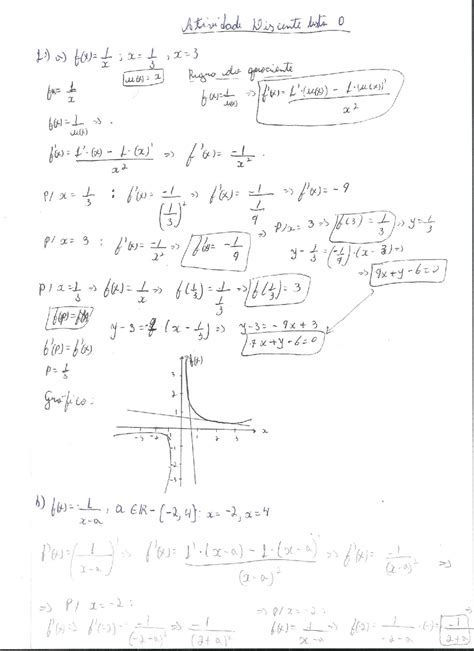 Atividade Discente lista 0
1.) a) f(x) = 1/x ; x = 1/3 , x = 3
f(x) = 1/x
u(x) = x
Regra do quociente
f(x) = 1/u(x) => f'(x) = 1'·(u(x)) - 1·(u(x))' / x²
f(x) = 1/u(x) =>
f'(x) = 1'·(x) - 1·(x)' / x² => f'(x) = -1/x² .
P/ x = 1/3 : f'(x) = -1/(1/3)² => f'(x) = -1/(1/9) => f'(x) = -9
P/ x = 3 : f'(x) = -1/x² => f'(x) = -1/9 => P/ x = 3 => f(3) = 1/3 => y = 1/3
y - 1/3 = (-1/9)·(x - 3) =>
=> 9x + y - 6 = 0
P/ x = 1/3 => f(x) = 1/x => f(1/3) = 1/(1/3) => f(1/3) = 3
f(p) = f(x)
y - 3 = -9 (x - 1/3) => y - 3 = -9x + 3
f'(p) = f'(x)
9x + y - 6 = 0
p = 1/3
Gráfico:
f(x)
3
2
-3 -2 -1
1 2 3
x
-2
-3
b) f(x) = 1/(x-a) , a ∈ R - {-2, 4} : x = -2, x = 4
f'(x) = (1/(x-a))' => f'(x) = 1'·(x-a) - 1·(x-a)' / (x-a)² => f'(x) = -1/(x-a)² =>
=> P/ x = -2 :
=> p/ x = -2 :
f'(x) => f'(-2) = -1/(-2-a)² = -1/(2+a)²
f(x) = 1/(x-a)